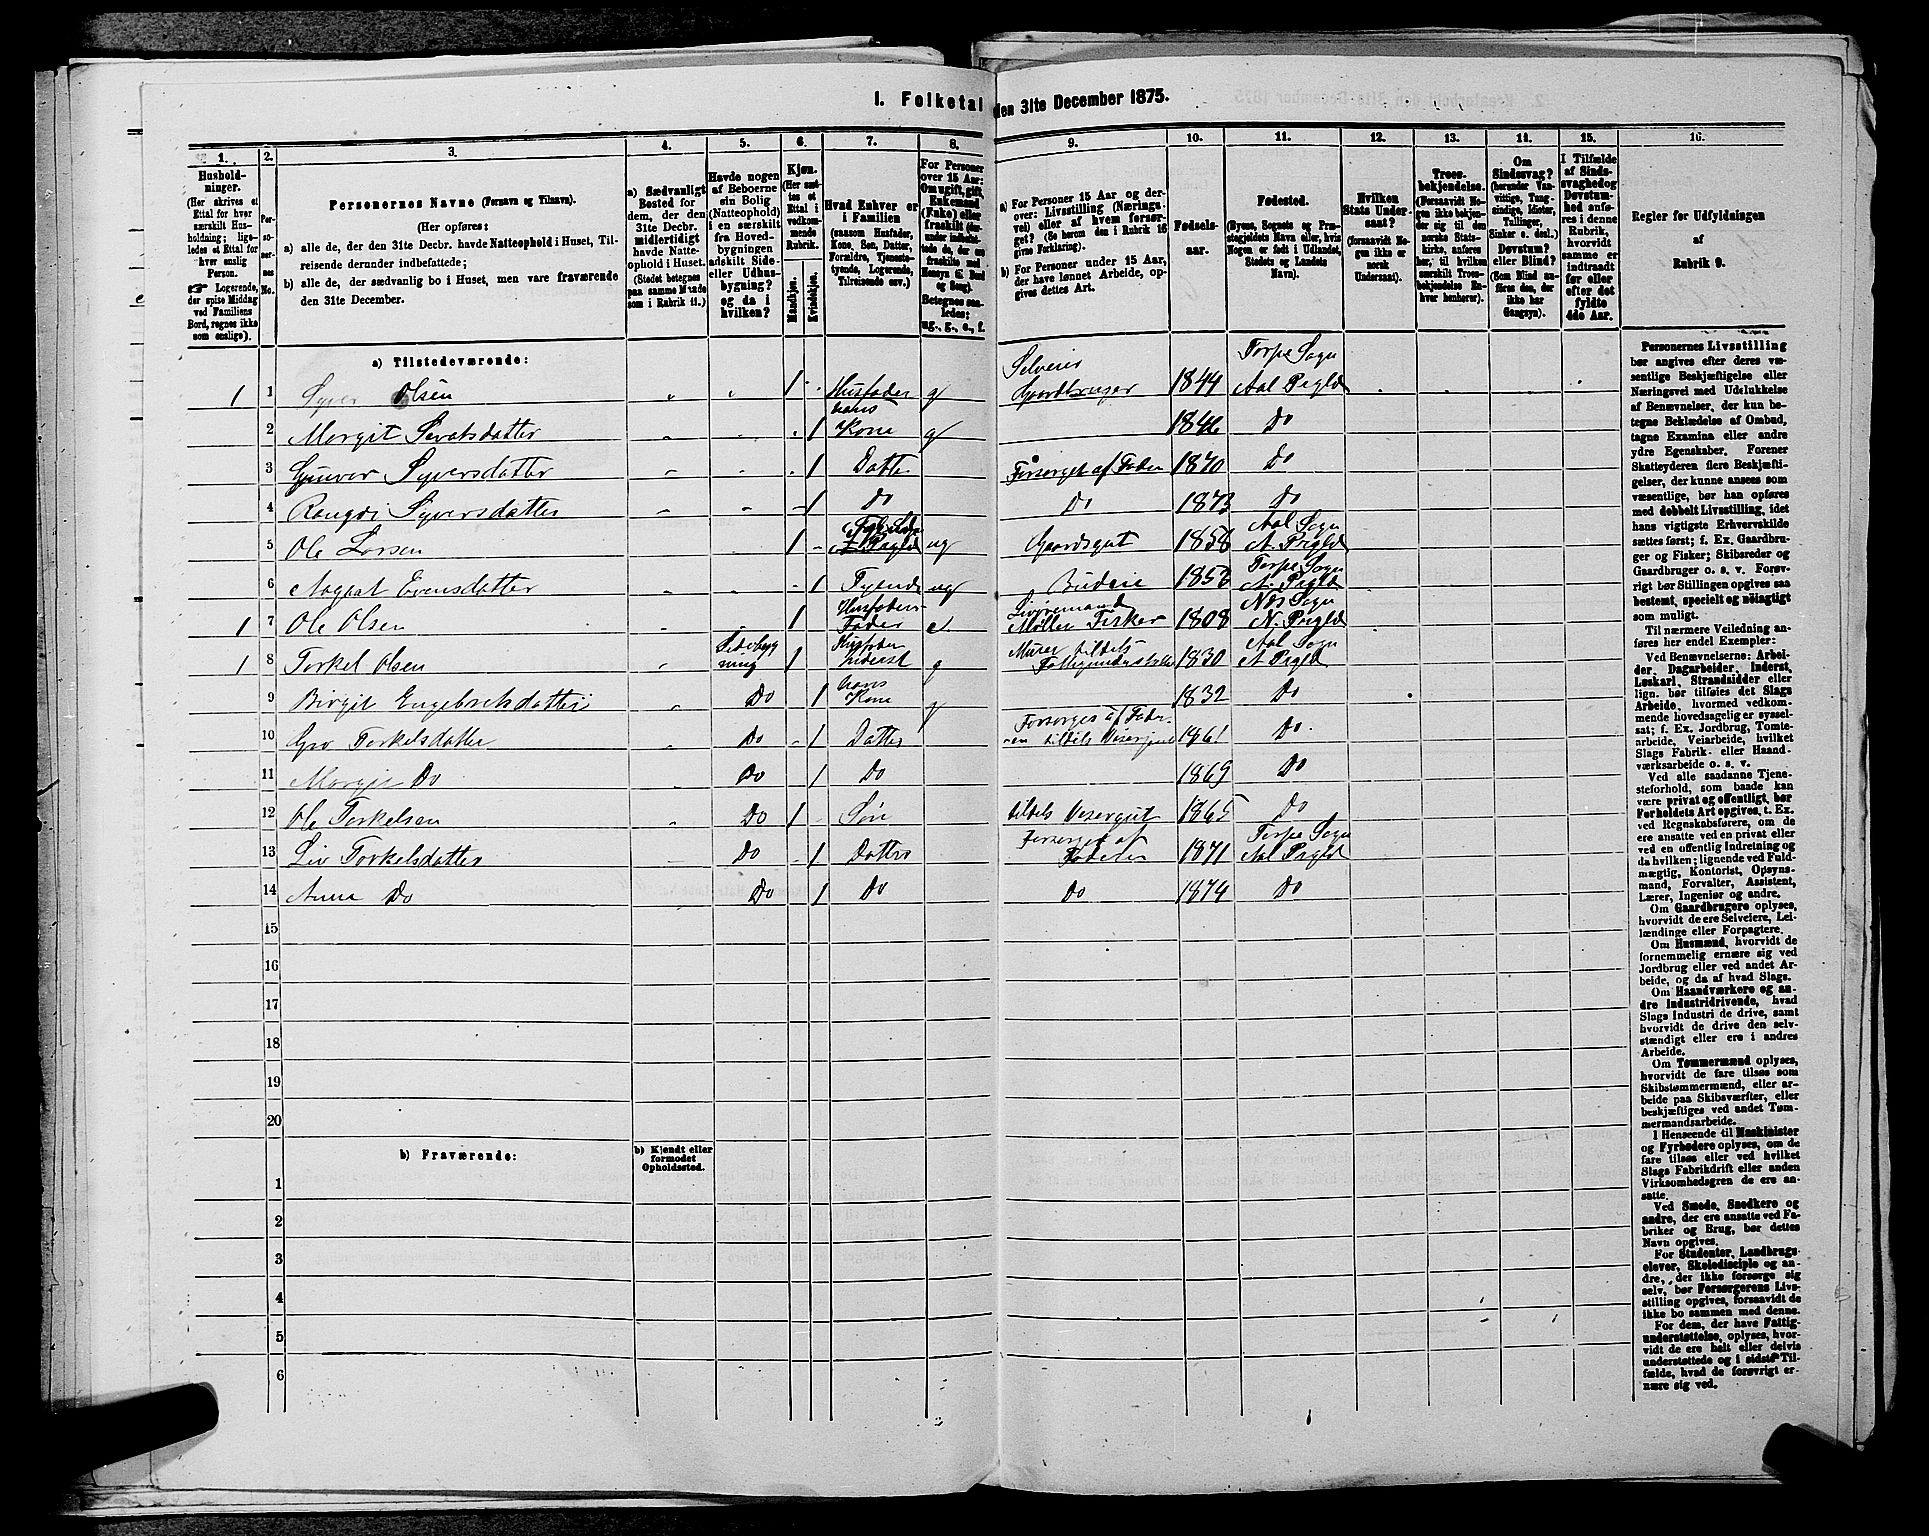 1. Folketal den 31te December 1875.
1. 2. 3. 4. 5. 6. 7. 8. 9. 10. 11. 12. 13. 14. 15. 16.
Husholdninger.
(Her skrives et
Ettal for hver
særskilt Husholdning;
ligeledes et Ettal for
hver enslig
Person.
Logerende,
der spise Middag
ved Familiens
Bord, regnes ikke
som enslige).
Personernes No.
Personernes Navne (Fornavn og Tilnavn).
(Her opføres:
a) alle de, der den 31te Decbr. havde Natteophold i Huset, Tilreisende derunder indbefattede;
b) alle de, der sædvanlig bo i Huset, men vare fraværende
den 31te December.
a) Sædvanligt
Bosted for
dem, der den
31te Decbr.
midlertidigt
havde Natteophold i Huset.
(Stedet betegnes
paa samme Maade
som i Rubrik 11.)
Havde nogen
af Beboerne
sin Bolig
(Natteophold)
i en særskilt
fra Hovedbygningen
adskilt Side-
eller Udhusbygning?
og da i
hvilken?
Kjøn.
(Her sættes et
Ettal i
vedkommende
Rubrik.
Mandkjøn.
Kvindekjøn.
Hvad Enhver er
i Familien
(saasom Husfader,
Kone, Søn, Datter,
Forældre, Tjenestetyende, Logerende,
Tilreisende osv.)
For Personer
over 15 Aar:
Om ugift, gift,
Enkemand
(Enke) eller
fraskilt
Betegnes saaledes:
ug., g., e., f.
a) For Personer 15 Aar og derover: Livsstilling (Næringsvei) eller af hvem forsørget? (Se herom den i Rubrik 16
givne Forklaring).
b) For Personer under 15 Aar,
der have lønnet Arbeide, opgives dettes Art.
Fødselsaar.
Fødested.
(Byens, Sognets og Præstegjeldets Navn eller, hvis
Nogen er født i Udlandet,
Stedets og Landets
Navn).
Hvilken
Stats Undersaat?
(forsaavidt Nogen ikke er
norsk
Undersaat).
Troesbekjendelse.
(Forsaavidt Nogen ikke bekjender sig til den
norske Statskirke, anføres
her, til hvilken
særskilt Troesbekjendelse Enhver henhører).
Om
Sindssvag?
(herunder Vanvittige, Tungsindige, Idioter,
Tullinger,
Sinker o. desl.)
Døvstum?
eller Blind?
(Som Blind anføres den, der
ikke har
Gangsyn).
I Tilfælde
af Sindssvaghed og
Døvstumhed anføres i denne
Rubrik,
hvorvidt
samme er
indtraadt
før eller
efter det
fyldte
4de Aar.
Regler for Udfyldningen
af
Rubrik 9.
a) Tilstedeværende:
1 1 Syver Olsen 1 Husfader g Selveier Gaardbruger 1844 Torpe Sogn Aal Prgld
2 Margit Sevatsdatter 1 hans Kone g 1846 Do
3 Gunvor Syversdatter 1 Datter Forsørget af Fader 1870 Do
4 Rangdi Syversdatter 1 Do Do 1873 Do
5 Ole Larsen 1 ug Gaardsgut 1858 Aal Sogn A. Prgld
6 Aagaat Evensdatter 1 Tyende ug Budeie 1853 Torpe Sogn A. Prgld
1 7 Ole Olsen 1 Husfaders Fader e. Livøremand Møller Fisker 1808 Næs Sogn N. Prgld
1 8 Torkel Olsen Sidebygning 1 Inderst g Murer tildels 1830 Aal Sogn A Prgld
9 Birgit Engebretsdatter Do 1 hans Kone g 1832 Do
10 Gro Torkelsdatter Do 1 Datter Forsørges af Faderen tildels 1861 Do
11 Margit Do Do 1 Do 1869 Do
12 Ole Torkelsen Do 1 Søn tildels Visergut 1865 Do
13 Liv Torkelsdatter Do 1 Datter Forsørget af Faderen 1871 Torpe Sogn Aal Prgld
14 Anne Do Do 1 Do Do 1874 Do
15
16
17
18
19
20
b) Fraværende:
b) Kjendt eller
formodet
Opholdssted.
1
2
3
4
5
6
Personernes Livsstilling
bør angives efter deres væsentlige Beskjæftigelse eller
Næringsvei med Udelukkelse
af Benævnelser, der kun betegne Beklædelse af Ombud,
tagne Examina eller andre
ydre Egenskaber. Forener
Skatteyderen flere Beskjæftigelser, der kunne ansees som
væsentlige, bør han opføres
med dobbelt Livsstilling, idet
hans vigtigste Erhvervskilde
sættes først; f. Ex. Gaardbruger og Fisker; Skibsreder og
Gaardbruger o. s. v. Forøvrigt bør Stillingen opgives saa
bestemt, specielt og nøiagtigt
som muligt.
Til nærmere Veiledning anføres her endel Exempler:
Ved Benævnelserne: Arbeider, Dagarbeider, Inderst,
Løskarl, Strandsidder eller
lign. bør tilføies det Slags
Arbeide, hvormed vedkommende hovedsagelig er sysselsat; f. Ex. Jordbrug, Tomtearbeide, Veiarbeide, hvilket
Slags Fabrik- eller Haandværksarbeide o. s. v.
Ved alle saadanne Tjenesteforhold, som baade kan
være privat og offentligt, bør
Forholdets Art opgives, t. Ex.
ved Regnskabsførere, om de
ere ansatte ved en privat eller
ved en offentlig Indretning og
da hvilken; lignende ved Fuldmægtig, Kontorist, Opsynsmand, Forvalter, Assistent,
Lærer, Ingeniør og andre.
Om Gaardbrugere oplyses,
hvorvidt de ere Selveiere, Leilændinge eller Forpagtere.
Om Husmænd, hvorvidt de
fornemmelig ernære sig ved
Jordbrug eller ved andet Arbeide, og da af hvad Slags.
Om Haandværkere og andre Industridrivende, hvad
Slags Industri de drive, samt
hvorvidt de drive den selvstændigt eller ere i andres
Arbeide.
Om Tømmermænd oplyses,
hvorvidt de fare tilsøs som
Skibstømmermænd, eller arbeide paa Skibsværfter, eller
beskjæftiges ved andet Tømmermandsarbeide.
I Henseende til Maskinister
og Fyrbødere oplyses, om de
fare tilsøs eller ved hvilket
Slags Fabrikdrift eller anden
Virksomhedsgren de ere ansatte.
Ved Smede, Snedkere og
andre, der ere ansatte ved Fabriker og Brug, bør dettes
Navn opgives.
For Studenter, Landbrugselever, Skoledisciple og andre, der ikke forsørge sig
selv, bør Forsørgerens Livsstilling opgives, forsaavidt de
ikke bo sammen med denne.
For dem, der have Fattigunderstøttelse, oplyses, hvorvidt de ere helt eller delvis
understøttede og i sidste Tilfælde, hvad de forøvrigt ernære sig ved.